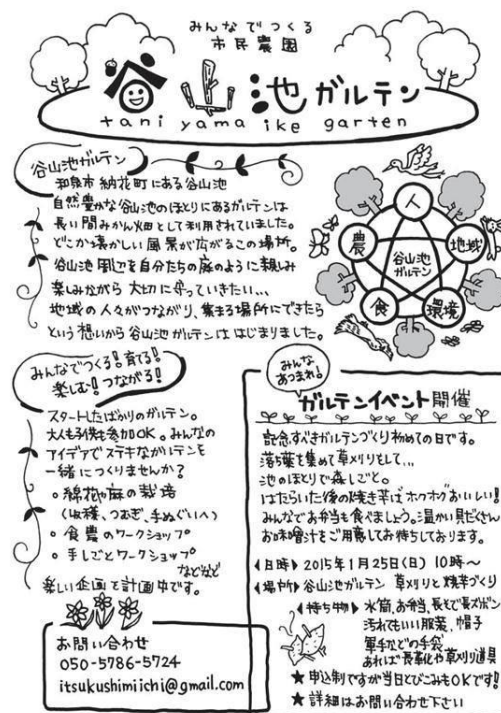 みんなでつくる
市民農園
谷山池ガルテン
taniyama ike garten
谷山池ガルテン
和泉市 納花町にある谷山池
自然豊かな谷山池のほとりにあるガルテンは
長い間みかん畑として利用されていました。
どこか懐かしい風景が広がるこの場所。
谷山池周辺を自分たちの庭のように親しみ
楽しみながら大切に守っていきたい...
地域の人々がつながり、集まる場所にできたら
という想いから谷山池ガルテンははじまりました。
人
農
地域
谷山池
ガルテン
食
環境
みんなでつくる!育てる!
楽しむ!つながる!
スタートしたばかりのガルテン。
大人も子供も参加OK。みんなの
アイデアでステキなガルテンを
一緒につくりませんか?
○綿花や麻の栽培
(収穫、つむぎ、手ぬぐいへ)
○食農のワークショップ
○手しごとワークショップ
などなど
楽しい企画を計画中です。
お問い合わせ
050-5786-5724
itsukushimiichi@gmail.com
みんな
あつまれ!
ガルテンイベント開催
記念すべきガルテンづくり初めての日です。
落ち葉を集めて草刈りをして...
池のほとりで森しごと。
はたらいた後の焼き芋はホクホクおいしい!
みんなでお弁当も食べましょう。温かい具だくさん
お味噌汁をご用意してお待ちしております。
◀日時▶2015年1月25日(日) 10時〜
◀場所▶谷山池ガルテン 草刈りと焼芋づくり
◀持ち物▶水筒、お弁当、長そで長ズボン
汚れてもいい服装、帽子
軍手などの手袋
あれば長靴や草刈り道具
★申込制ですが当日とびこみもOKです!
★詳細はお問い合わせ下さい